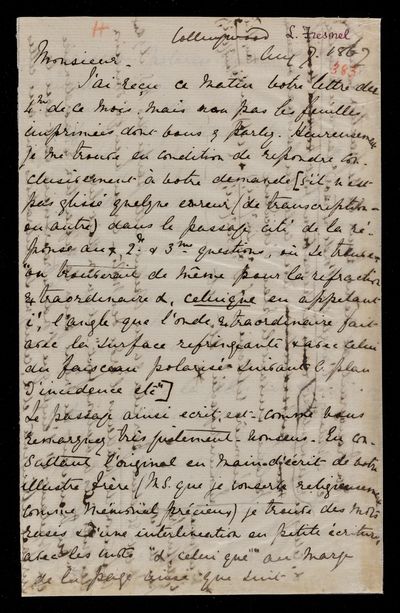 H
L. Fresnel
Collingwood
Aug 7. 1867
383
Monsieur.
J'ai reçu ce matin votre lettre du
4me de ce mois mais non pas les feuilles
imprimées dont vous y parlez. Heureusement
je me trouve en condition de repondre con-
clusivement à votre demande [s'il n'est
pas glissé quelque erreur (de transcription
ou autre) dans le passage cité de la ré-
ponse aux 2de & 3me questions, où se trouve
"on traiterait de même pour la réfraction
extraordinaire d, celuique en appelant
i', l'angle que l'onde extraordinaire fait
avec la surface refringeante & avec celui
du faisceau polarisé suivant le plan
d'incidence etc"]
Le passage ainsi ecrit est comme vous
remarquez très justement nonsens. En con-
sultant l'original en main d'écrit de votre
illustre frère (MS. que je conserve religieusement
comme memorial précieux) je trouve des mots
rases & d'une interlineation en petite écriture
avec les mots "d, celui que" au marge
de la page ainsi que suit